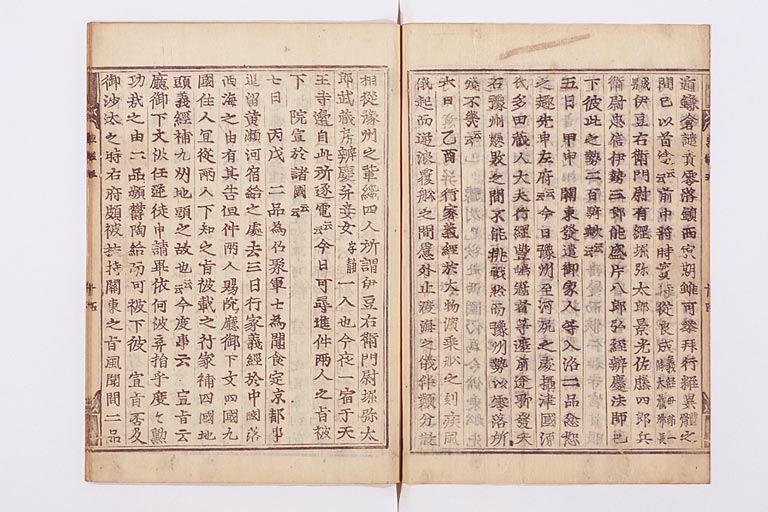 遁鎌倉譴責零落鎮西最期雖可參拜行粧異體之
間已以首途云云前中將時實侍從良成義經同母弟一條大藏卿長
成男伊豆右衛門尉有綱堀弥太郎景光佐藤四郎兵
衛尉忠信伊勢三郎能盛片八郎弘經辨慶法師已
下彼此之勢二百騎歟云云
五日　甲申　關東發遣御家人等入洛二品忿怒
之趣先申左府云云今日豫州至河尻之處攝津國源
氏多田藏人大夫行綱豐嶋冠者等遮前途聊發矢
石豫州懸敗之間不能挑戰然而豫州勢以零落所
殘不幾云云
六日　乙酉　行家義經於大物濱乘船之刻疾風
俄起而逆浪覆船之間慮外止渡海之儀伴類分散
相從豫州之輩纔四人所謂伊豆右衛門尉堀弥太
郎武藏房辨慶并妾女字靜一人也今夜一宿于天
王寺邊自此所逐電云云今日可尋進件兩人之旨被
下　院宣於諸國云云
七日　丙戌　二品為召聚軍士為聞食定京都事
逗留黃瀬河宿給之處去三日行家義經於中國落
西海之由有其告但件兩人賜院廳御下文四國九
國住人宜從兩人下知之旨被載之行家補四國地
頭義經補九州地頭之故也云云今度事云　宣旨云
廳御下文伏任逆徒申請畢依何被弃捐乎度々勲
功哉之由二品頻鬱陶給而可被下彼　宣旨否及
御沙汰之時右府頗被扶持關東之旨風聞間二品